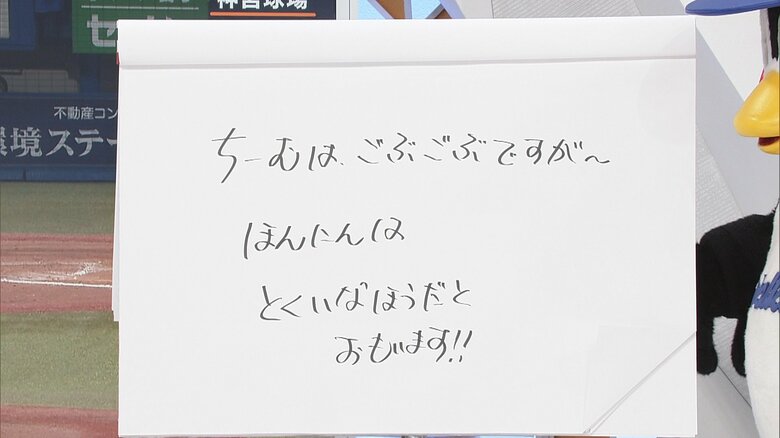 神宮球場
不動産コン
環境ステー
ちーむは、ごぶごぶですが〜
ほんにんは
とくいなほうだと
おもいます!!